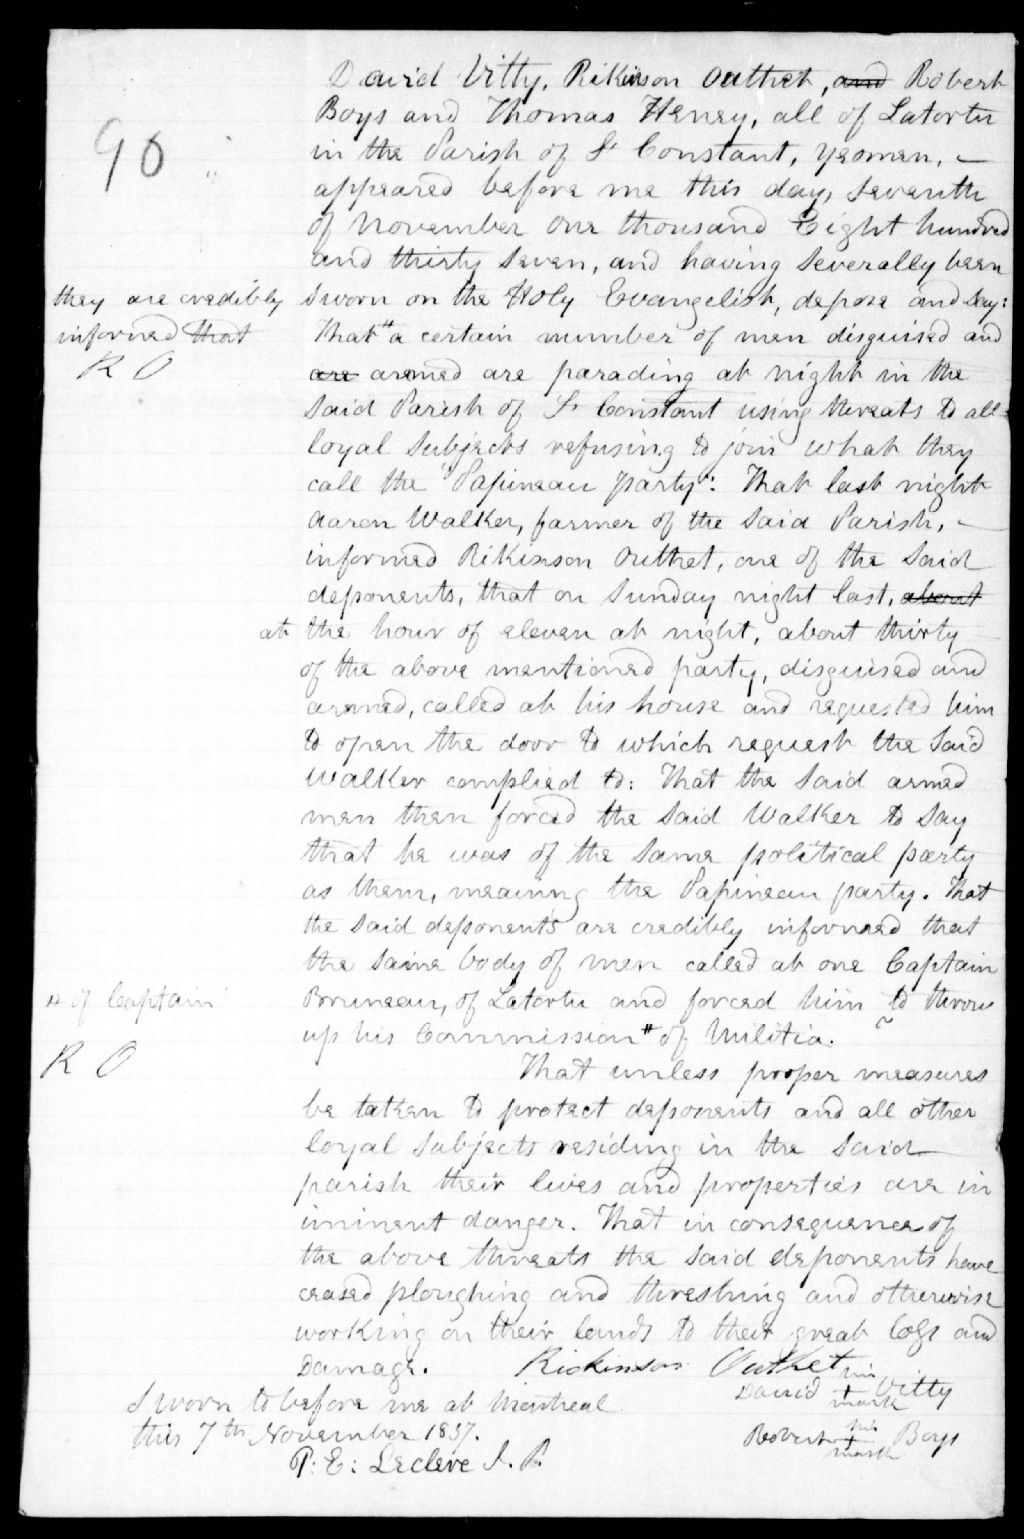 90
David Vitty, Rikinson Outhet, and Robert
Boys and Thomas Henry, all of Latortu
in the Parish of St Constant, yeomen, —
appeared before me this day, seventh
of November one thousand Eight hundred
and thirty seven, and having severally been
sworn on the Holy Evangelist, depose and say:
they are credibly
informed that
R O
That " a certain number of men disguised and
are armed are parading at night in the
said Parish of St Constant using threats to all
loyal subjects refusing to join what they
call the "Papineau party": That last night
Aaron Walker, farmer of the said Parish, —
informed Rikinson Outhet, one of the said
deponents, that on Sunday night last, about
at the hour of eleven at night, about thirty
of the above mentioned party, disguised and
armed, called at his house and requested him
to open the door to which request the said
Walker complied to: That the said armed
men then forced the said Walker to say
that he was of the same political party
as them, meaning the Papineau party. That
the said deponents are credibly informed that
the same body of men called at one Captain
Bruneau, of Latortu and forced him to throw
up his Commission # of Militia.
# of Captain
R O
That unless proper measures
be taken to protect deponents and all other
loyal subjects residing in the said
parish their lives and properties are in
iminent danger. That in consequence of
the above threats the said deponents have
ceased ploughing and threshing and otherwise
working on their lands to their great loss and
Damage. Rickinson Outhet
David his + mark Vitty
Robert his + mark Boys
Sworn to before me at Montreal
this 7th November 1837.
P: E: Leclere J. P.